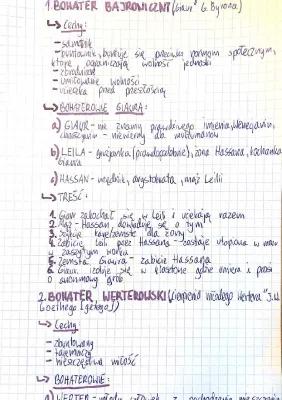 1. BOHATER BAJRONICZNY ("Giaur" G. Byrona)
↳ Cechy:
- samotnik
- buntownik, buntuje się przeciwko normom społecznym,
które ograniczają wolność jednostki
- zbrodniarz
- umiłowanie wolności
- ucieczka przed przeszłością
↳ BOHATEROWIE GIAURA:
a) GIAUR - nie znamy prawdziwego imienia, Wenecjanin,
chrześcijanin - niewierny dla muzułmanów
b) LEILA - (prawdopodobnie), żona Hassana, kochanka
Giaura
c) HASSAN - urzędnik, arystokrata, mąż Leili
↳ TREŚĆ:
1. Giaur zakochał się w Leili i uciekają razem
2. Mąż - Hassan dowiaduje się o tym
3. dla żony
4. Zabicie Leili przez Hassana - zostaje utopiona w morzu
w zaszytym worku
5. Zemsta Giaura - zabicie Hassana
6. Giaur się w klasztorze gdzie umiera i prosi
o anonimowy grób
2. BOHATER WERTEROWSKI ("Cierpienia młodego Wertera" J.W.
Goethego [getego])
↳ Cechy
- zbuntowany
- tajemniczy
- nieszczęśliwa miłość
↳ BOHATEROWIE:
a) WERTER - młody człowiek z pochodzenia mieszczanin